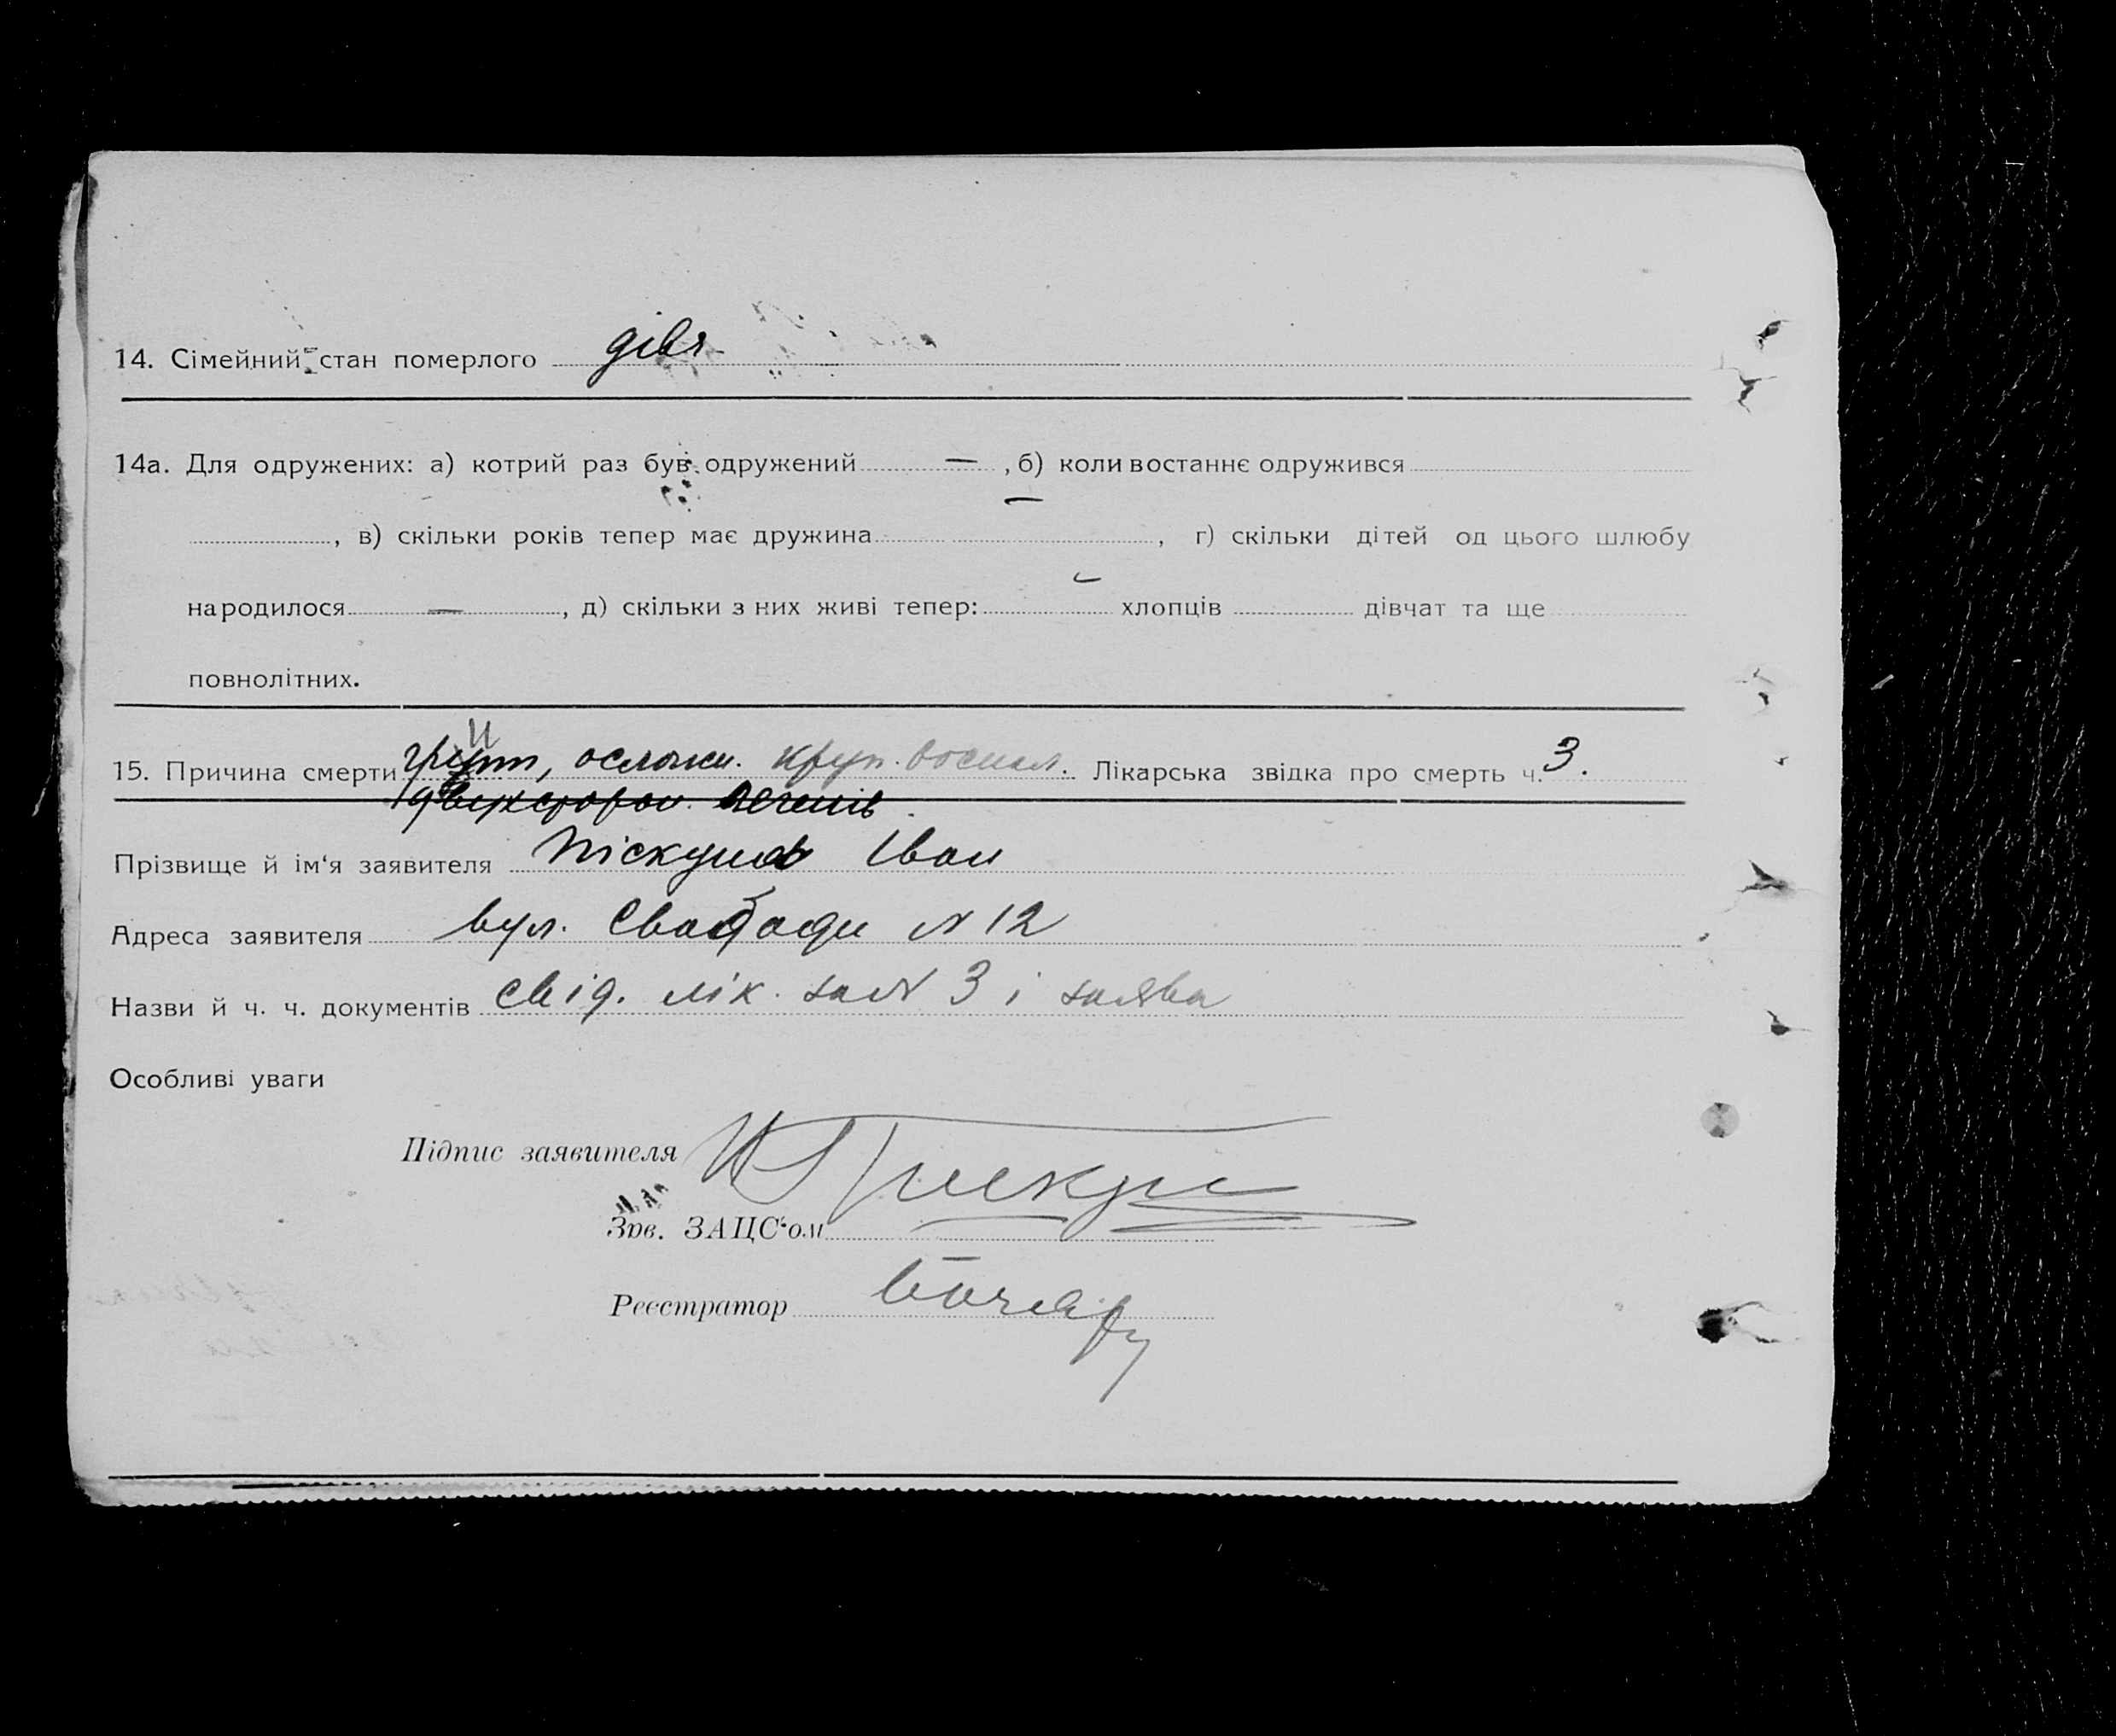 14. Сімейний стан померлого дівч
14а. Для одружених: а) котрий раз був одружений — , б) коли востаннє одружився —
, в) скільки років тепер має дружина , г) скільки дітей од цього шлюбу
народилося — , д) скільки з них живі тепер: — хлопців дівчат та ще
повнолітних.
15. Причина смерти грип, ослажн. круп. воспал. Лікарська звідка про смерть ч. 3.
двухсторон. легенів.
Прізвище й ім'я заявителя Піскунов Іван
Адреса заявителя вул. Свабоди № 12
Назви й ч. ч. документів свід. лік. за № 3 і заява
Особливі уваги
Підпис заявителя
Зав. ЗАЦС'ом
Реєстратор